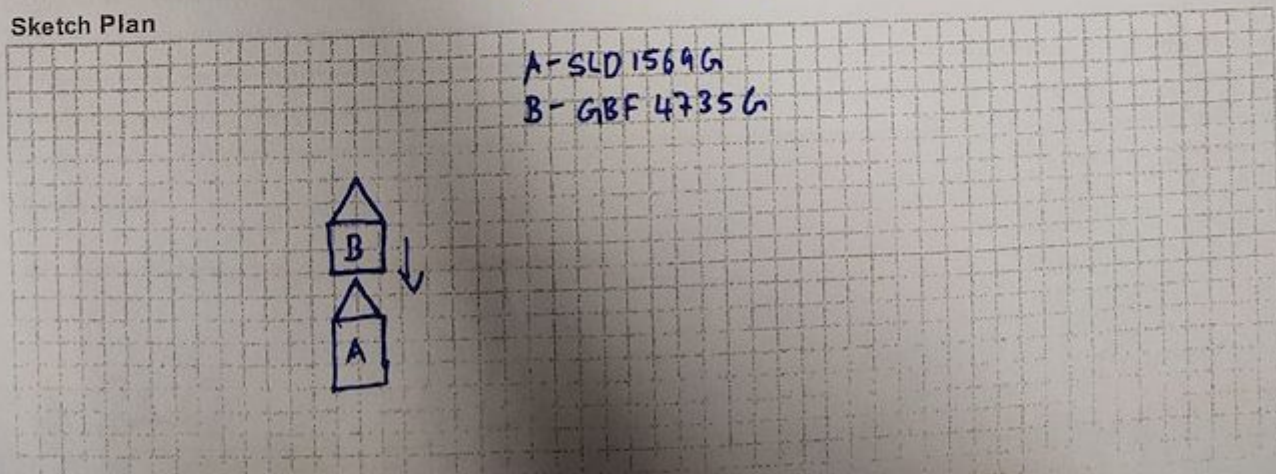 Sketch Plan
A - SLD 1569G
B - GBF 4735G
B
A